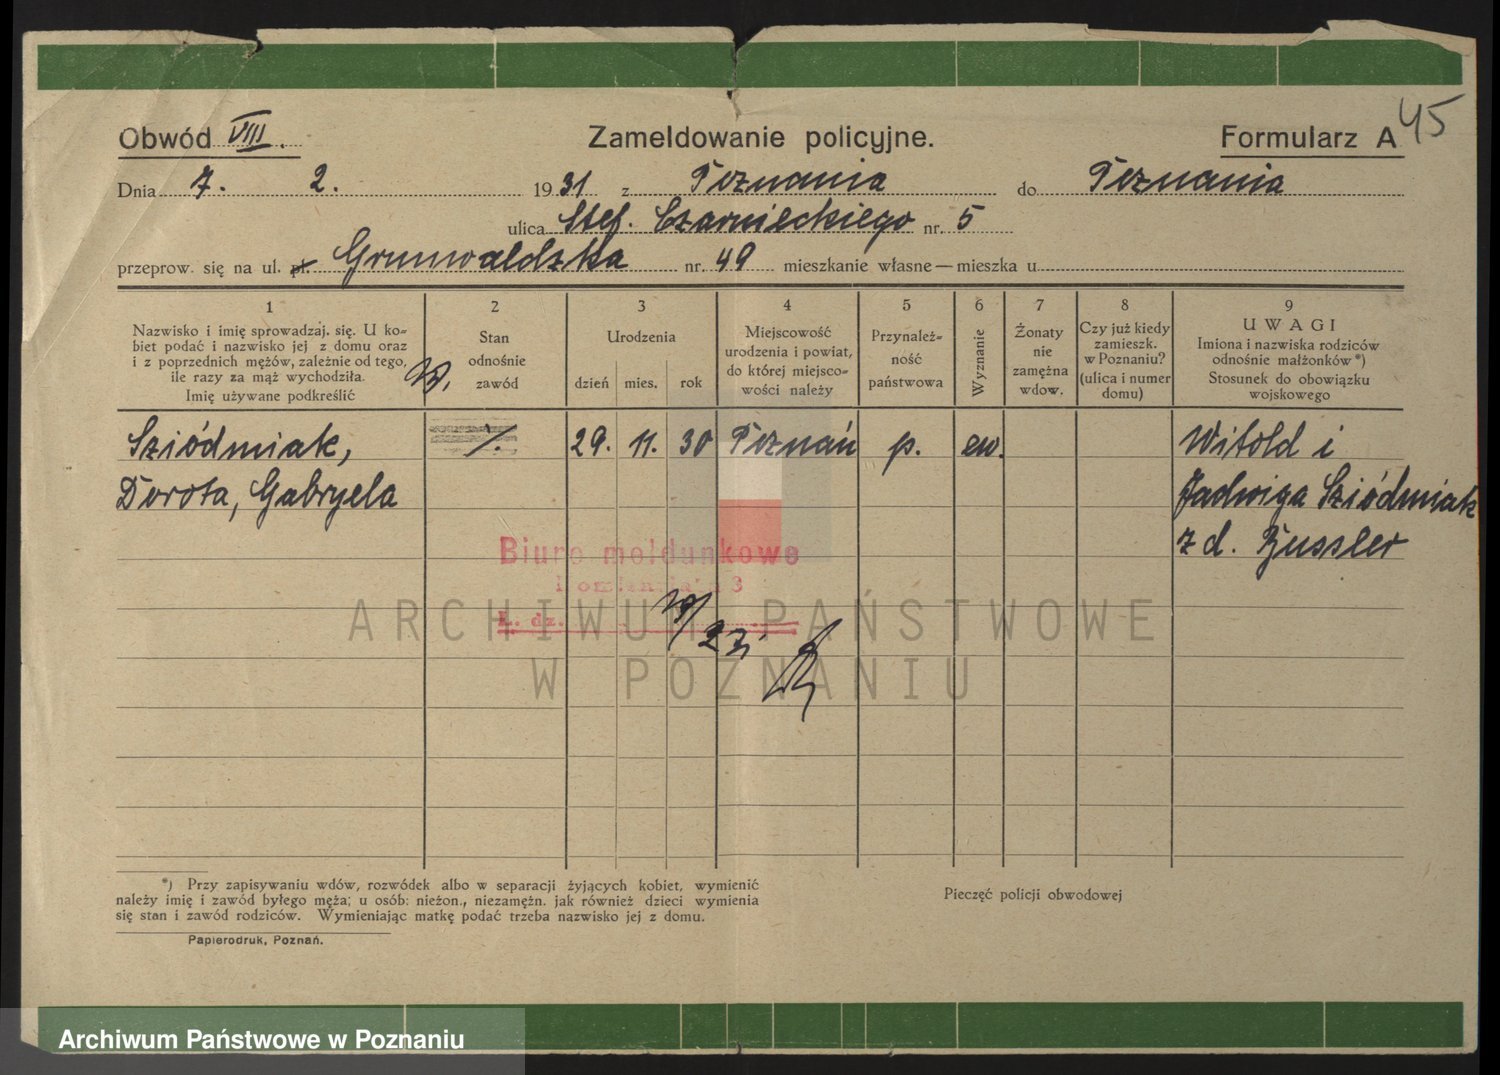 45
Obwód VIII. Zameldowanie policyjne. Formularz A
Dnia 7. 2. 1931 z Poznania do Poznania
ulica Stef. Czarnieckiego nr. 5
przeprow. się na ul. pl. Grunwaldzka nr. 49 mieszkanie własne — mieszka u
1 2 3 4 5 6 7 8 9
Nazwisko i imię sprowadzaj. się. U ko-
biet podać i nazwisko jej z domu oraz
i z poprzednich mężów, zależnie od tego,
ile razy za mąż wychodziła.
Imię używane podkreślić
Stan
odnośnie
zawód
Urodzenia
dzień mies. rok
Miejscowość
urodzenia i powiat,
do której miejsco-
wości należy
Przynależ-
ność
państwowa
Wyznanie
Żonaty
nie
zamężna
wdow.
Czy już kiedy
zamieszk.
w Poznaniu?
(ulica i numer
domu)
UWAGI
Imiona i nazwiska rodziców
odnośnie małżonków *)
Stosunek do obowiązku
wojskowego
Sziódmiak, /. 29. 11. 30 Poznań p. ew. Witold i
Dorota, Gabryela Jadwiga Sziódmiak
z d. Bussler
Biuro meldunkowe
3
L. dz.
ARCHIWUM PAŃSTWOWE
W POZNANIU
*) Przy zapisywaniu wdów, rozwódek albo w separacji żyjących kobiet, wymienić
należy imię i zawód byłego męża; u osób: nieżon., niezamężn. jak również dzieci wymienia
się stan i zawód rodziców. Wymieniając matkę podać trzeba nazwisko jej z domu.
Pieczęć policji obwodowej
Papierodruk, Poznań.
Archiwum Państwowe w Poznaniu